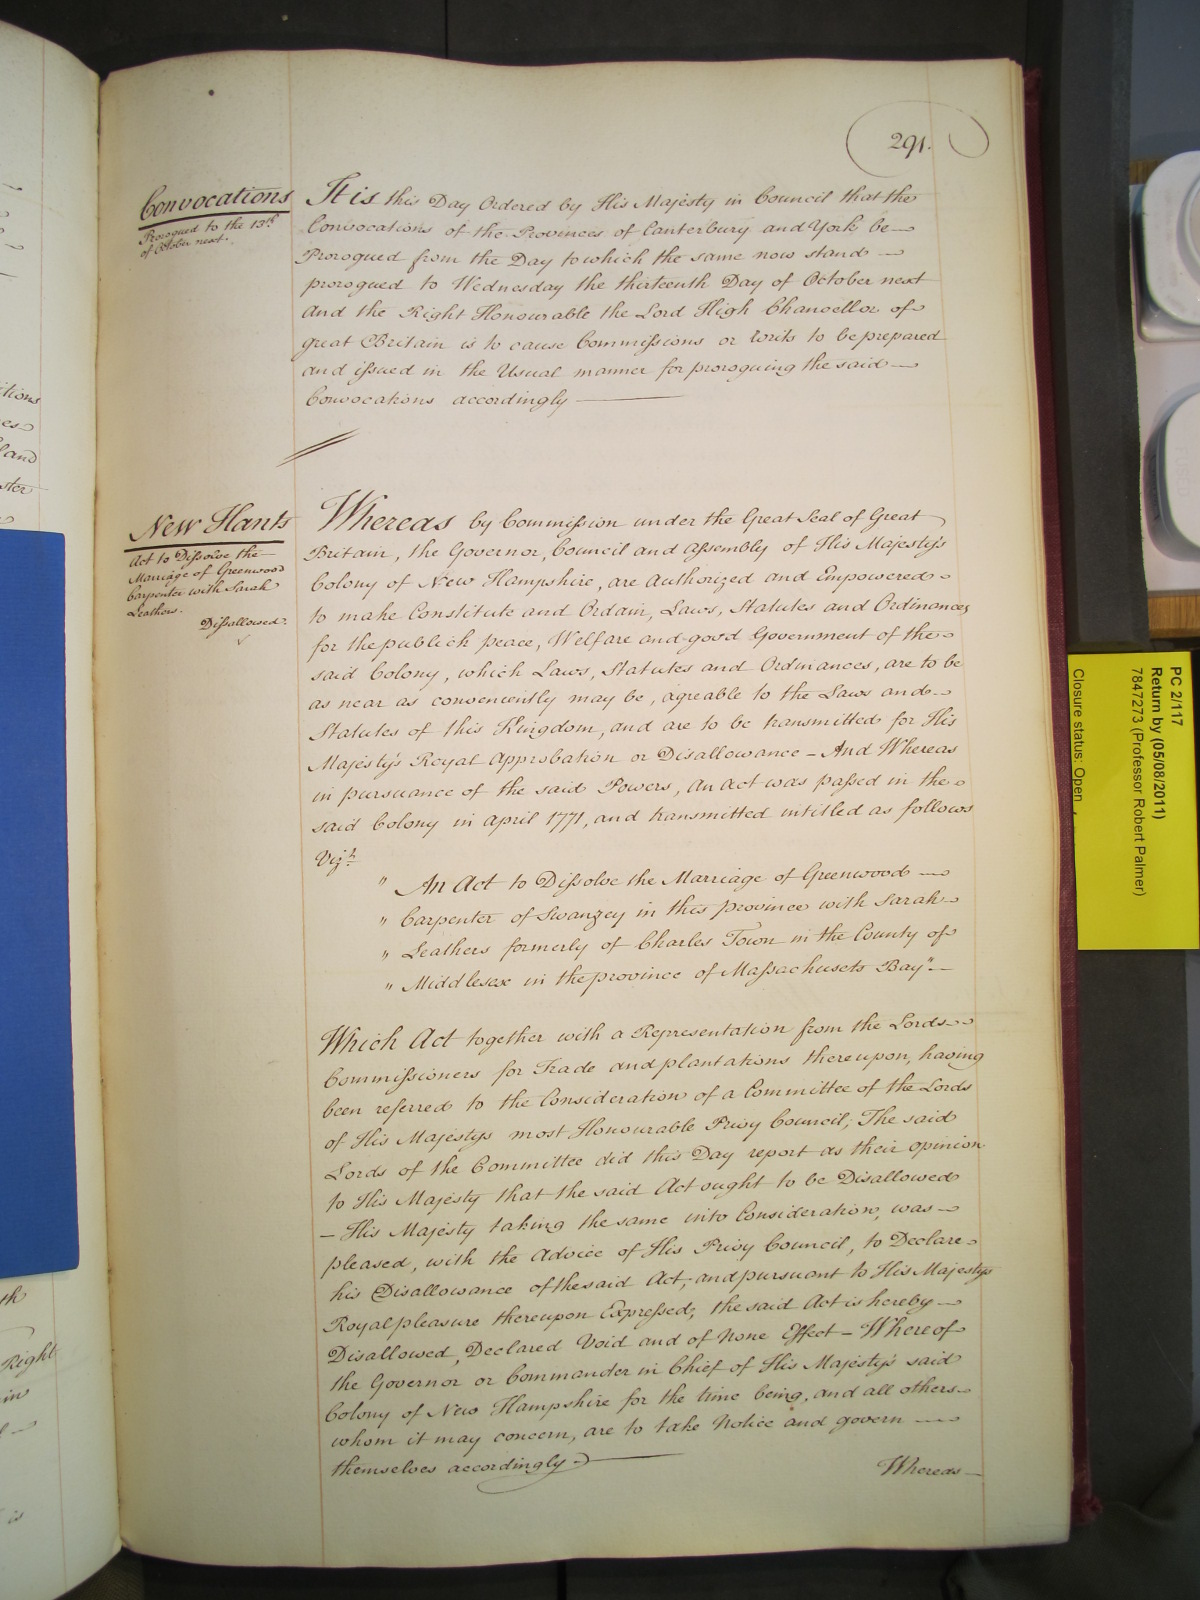 291.
Convocations
Prorogued to the 13th
of October next.
It is this Day Ordered by His Majesty in Council that the
Convocations of the Provinces of Canterbury and York be
Prorogued from the Day to which the same now stand
prorogued to Wednesday the thirteenth Day of October next
And the Right Honourable the Lord High Chancellor of
great Britain is to cause Commissions or Writs to be prepared
and issued in the Usual manner for proroguing the said
Convocations accordingly
New Hants
Act to Dissolve the
Marriage of Greenwood
Carpenter with Sarah
Leathers.
Disallowed.
Whereas by Commission under the Great Seal of Great
Britain, the Governor, Council and Assembly of His Majesty's
Colony of New Hampshire, are Authorized and Empowered
to make Constitute and Ordain, Laws, Statutes and Ordinances
for the publick peace, Welfare and good Government of the
said Colony, which Laws, Statutes and Ordinances, are to be
as near as conveniently may be, agreable to the Laws and
Statutes of this Kingdom, and are to be transmitted for His
Majesty's Royal Approbation or Disallowance - And Whereas
in pursuance of the said Powers, An Act was passed in the
said Colony in April 1771, and transmitted intitled as follows
Vizt.
" An Act to Dissolve the Marriage of Greenwood
" Carpenter of Swanzey in this province with Sarah
" Leathers formerly of Charles Town in the County of
" Middlesex in the province of Massachusets Bay"
Which Act together with a Representation from the Lords
Commissioners for Trade and plantations thereupon, having
been referred to the Consideration of a Committee of the Lords
of His Majestys most Honourable Privy Council; The said
Lords of the Committee did this Day report as their opinion
to His Majesty that the said Act ought to be Disallowed
- His Majesty taking the same into Consideration, was
pleased, with the Advice of His Privy Council, to Declare
his Disallowance of the said Act, and pursuant to His Majestys
Royal pleasure thereupon Expressed, the said Act is hereby
Disallowed, Declared Void and of None Effect - Whereof
the Governor or Commander in Chief of His Majesty's said
Colony of New Hampshire for the time being, and all others
whom it may concern, are to take Notice and govern
themselves accordingly.
Whereas
PC 2/117
Return by (05/08/2011)
7847273 (Professor Robert Palmer)
Closure status: Open